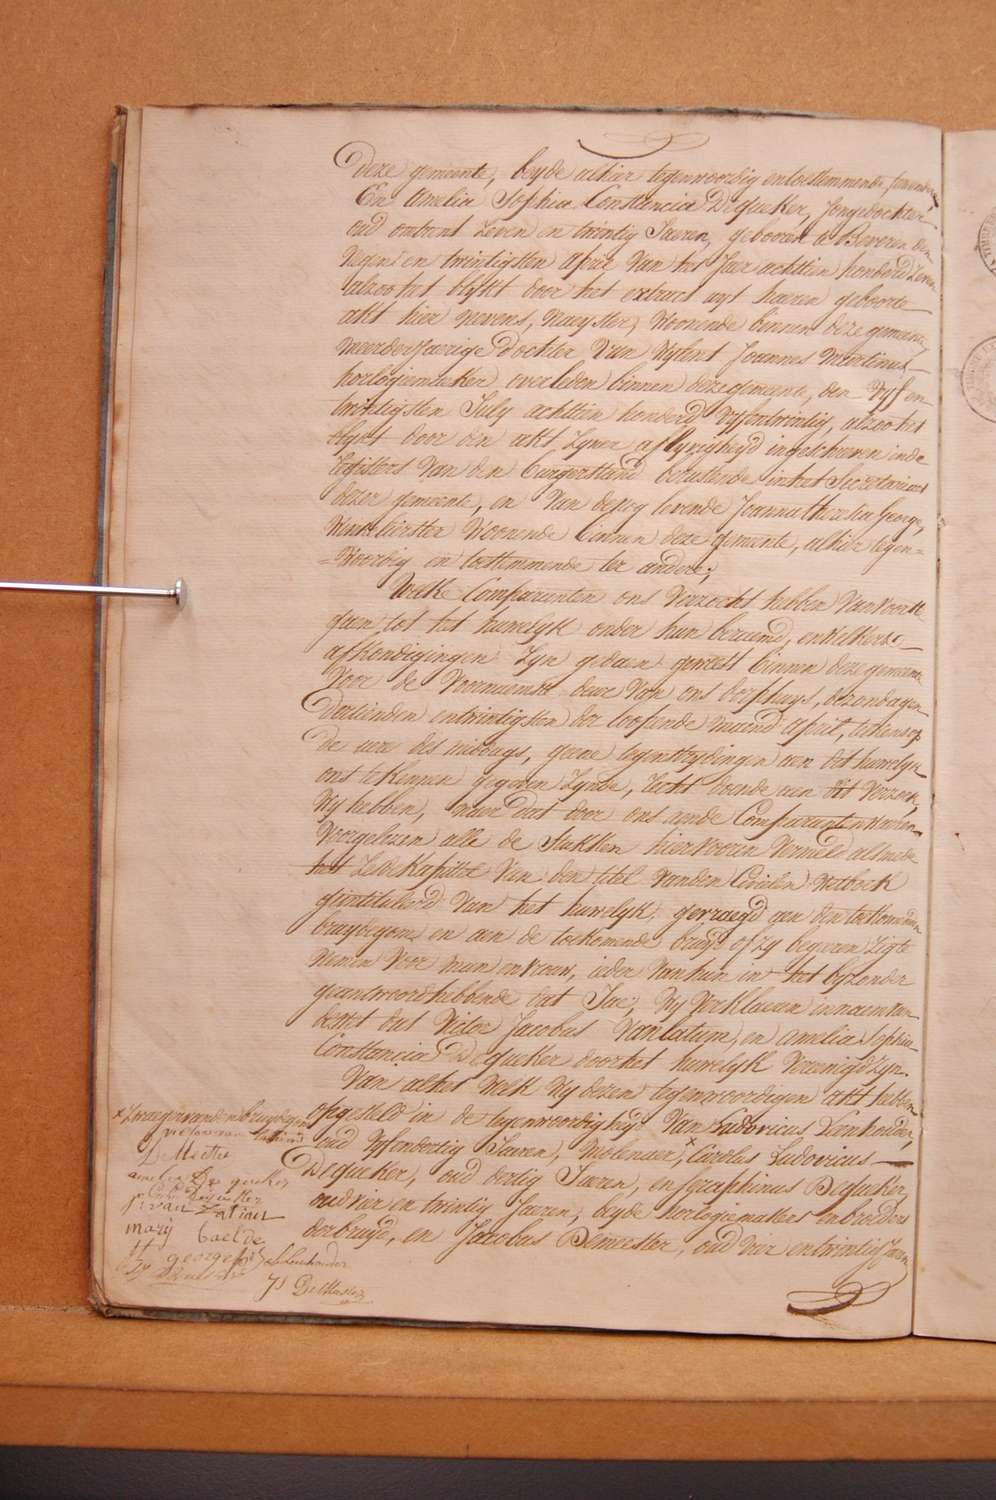 Deze gemeente, beyde alhier tegenwoordig en toestemmende ten eenen
En Amelia Sophia Constancia Dequeker, Jongedochter
oud omtrent Zeven en twintig Jaeren, geboren te Beveren den
Negen en twintigsten April van het Jaer achttien honderd Zeven
alzoo het blykt door het extract uyt haeren geboorte
akt hier nevens, Naeyster, Woonende binnen deze gemeente,
meerderjaerige dochter van wylent Joannes Martinus
horlogiemaeker overleden binnen deze gemeente, den vyf en
twintigsten July achttien honderd vyfentwintig, alzoo het
blykt door den akt zynen aflyvigheyd ingeschreven in de
registers van den burgerstand berustende in het Secretariaet
dezer gemeente, en van de nog levende Joanna Theresia George,
Winkelierster Woonende binnen deze gemeente, alhier tegen=
=woordig en toestemmende ter andere;
Welke Comparanten ons verzocht hebben van voorts te
gaen tot het huwelyk onder hun beraemd, en welkers
afkondigingen zyn gedaen geweest binnen deze gemeente
voor de voornaemste deure van ons dorphuys, de zondagen
dertienden en twintigsten der loopende maend April, telkens op
de ure des middags, geene tegenstrydingen aen dit huwelyk
ons te kennen gegeven zynde, recht doende aen dit verzoek,
Wy hebben, naer dat door ons aende Comparanten waeren
voorgelezen alle de Stukken hiervooren vermeld alsmede
het zesde kapittel van den titel vanden Civielen Wetboek
geintituleerd van het huwelyk, gevraegd aen den toekomenden
bruydegom en aen de toekomende bruyd of zy begeeren zigte
nemen voor man en vrouw, ieder van hun in het byzonder
geantwoord hebbende dat Jae; Wy verklaeren in naem van
de wet dat Victor Jacobus Vanlatum, en Amelia Sophia
Constancia Dequeker door het huwelyk vereenigd zyn.
Van al het welk wy dezen tegenwoordigen akt hebben
opgesteld in de tegenwoordigheyd van Ludovicus Vanhouder,
oud vyfendertig Jaeren, molenaer, x Carolus Ludovicus
Dequeker, oud dertig Jaeren, en Seraphinus Dequeker,
oud vier en twintig Jaeren; beyde horlogiemakers en broeders
der bruyd, en Jacobus Demeester, oud vier en twintig Jaeren
x Zwager van den bruydegom
D Meester
amelia De queker
mary Caelde
george
Js DeMeester